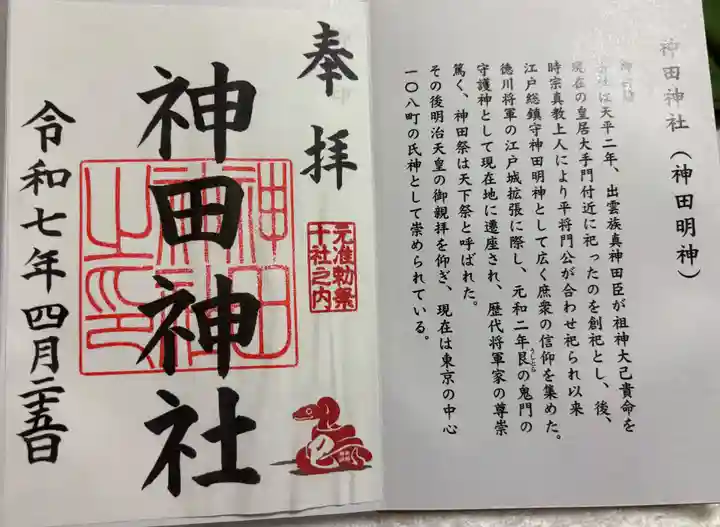 神田神社(神田明神)
当社は天平二年、出雲族真神田臣が祖神大己貴命を
現在の皇居大手門付近に祀ったのを創祀とし、後、
時宗真教上人により平将門公が合わせ祀られ以来
江戸総鎮守神田明神として広く庶衆の信仰を集めた。
徳川将軍の江戸城拡張に際し、元和二年艮の鬼門の
うしとら
守護神として現在地に遷座され、歴代将軍家の尊崇
篤く、神田祭は天下祭と呼ばれた。
その後明治天皇の御親拝を仰ぎ、現在は東京の中心
一〇八町の氏神として崇められている。
奉拝
元准勅祭
十社之内
神田神社
神田
神社
之印
令和七年四月二十五日